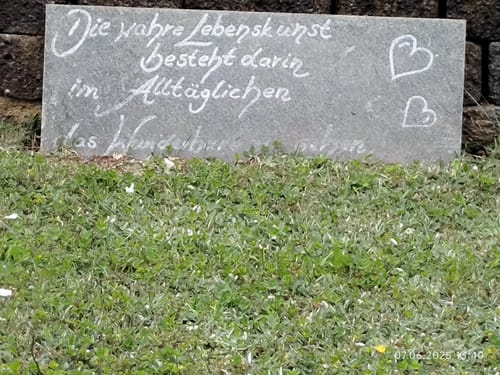 Die wahre Lebenskunst
besteht darin
im Alltäglichen
das Wunderbare
07.06.2025